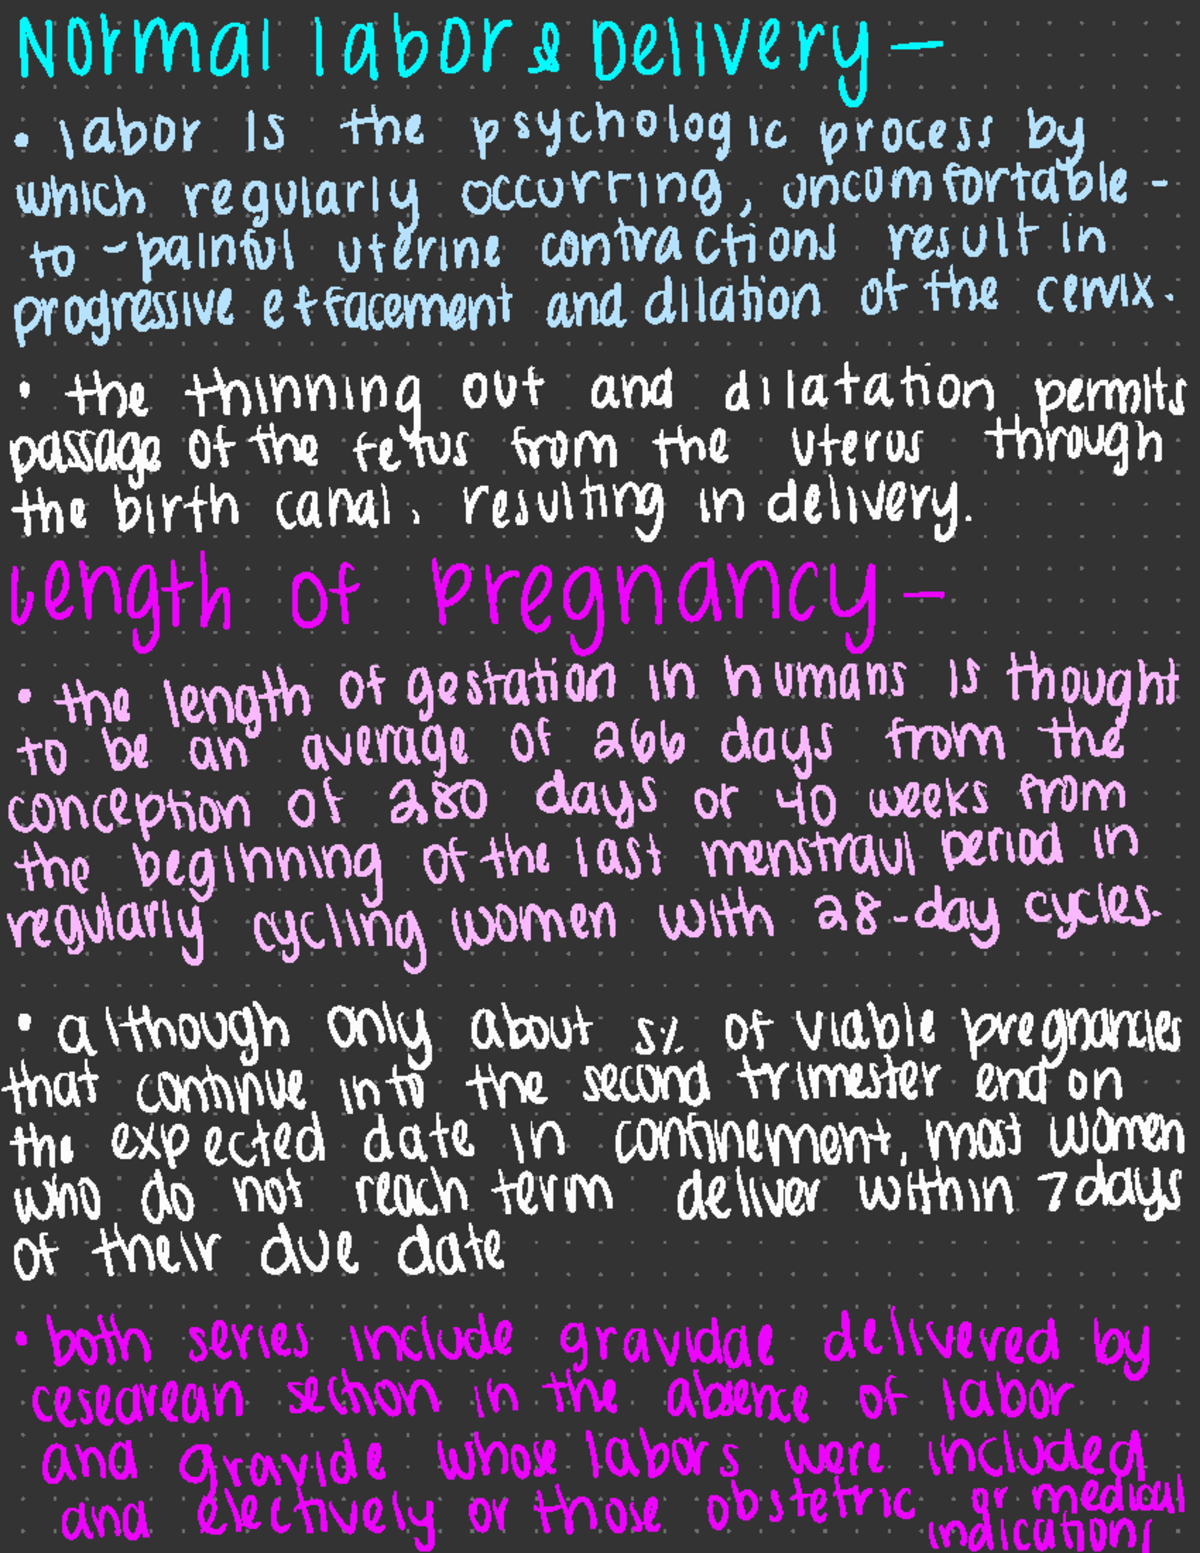 Normal labor & Delivery –
• labor is the psychologic process by
which regularly occurring, uncomfortable -
to - painful uterine contractions result in
progressive effacement and dilation of the cervix.
• the thinning out and dilatation permits
passage of the fetus from the uterus through
the birth canal, resulting in delivery.
Length of pregnancy –
• the length of gestation in humans is thought
to be an average of 266 days from the
conception of 280 days or 40 weeks from
the beginning of the last menstraul period in
regularly cycling women with 28-day cycles.
• although only about 5% of viable pregnancies
that continue into the second trimester end on
the expected date in confinement, most women
who do not reach term deliver within 7 days
of their due date
• both series include gravidae delivered by
cesearean section in the absence of labor
and gravide whose labors were included
and electively or those obstetric or medical
indications